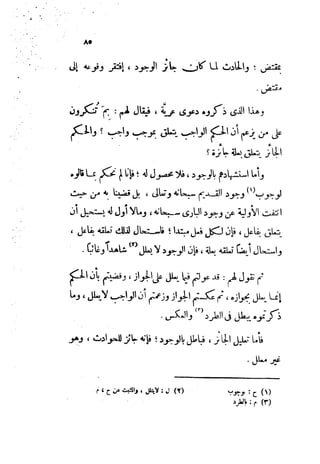 ٨٥
بمقتض ؛ والحادث لما كان جائز الوجود ، افتقر وقوعه إلى
مقتض .
وهذا الذى ذكروه دعوى عرية ، فيقال لهم : بم تنكرون
على من يزعم أن الحكم الواجب يتعلق بموجب واجب ؟ والحكم
الجائز يتعلق بعلة جائزة ؟
وأما استشهادهم بالوجود ، فلا محصول له ؛ فإنا لم نحكم بما قالوه
لوجوب (١) وجود القديم سبحانه وتعالى ، بل قضينا به من حيث
انتفت الأولية عن وجود البارى سبحانه ، ومالا أول له يستحيل أن
يتعلق بفاعل ، فإن لكل فعل مبتدأ ؛ فاستحال لذلك تعلقه بفاعل ،
واستحال أيضا تعلقه بعلة ، فإن الوجود لا يعلل (٢) شاهداً وغائباً .
ثم نقول لهم : قد عولتم فيما يعلل على الجواز ، وقضيتم بأن الحكم
إنما يعلل بجوازه ، ثم عكستم الجواز وزعمتم أن الواجب لا يعلل ، وما
ذكرتموه يبطل فى الطرد (٣) والعكس .
فأما تعليل الجائز ، فباطل بالوجود ؛ فإنه جائز للحوادث ، وهو
غير معلل .
(١) ح : بوجوب (٢) ل : لايعلل ، والمثبت من ح ، م
(٣) م : بالطرد